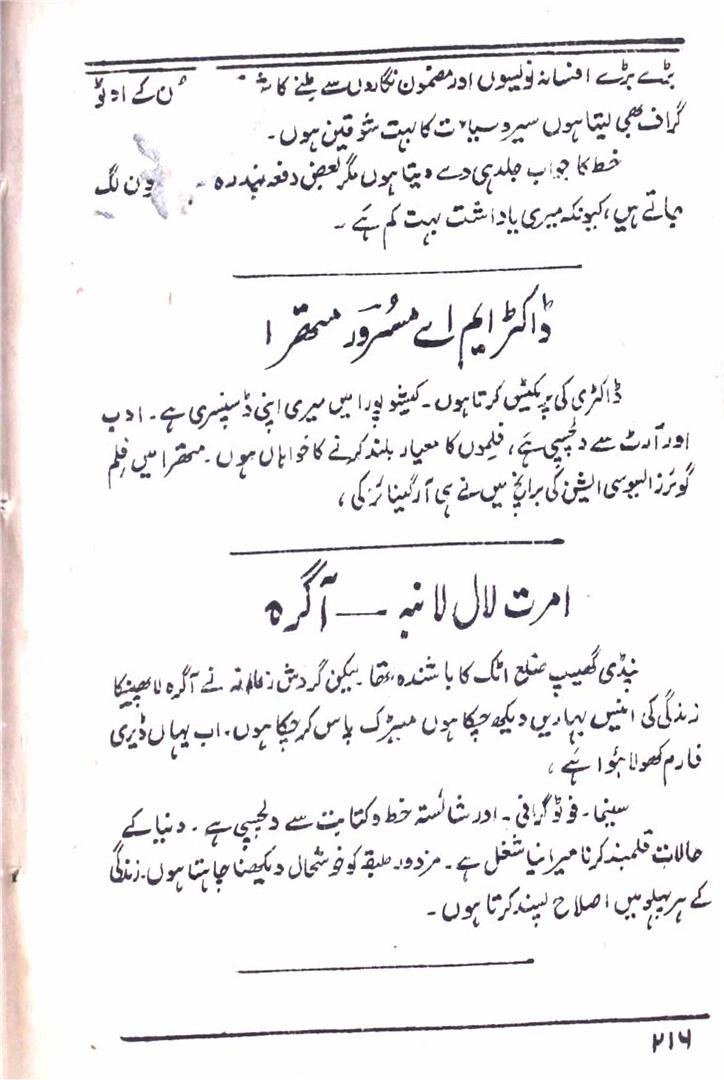 بڑے بڑے افسانہ نویسوں اور مضمون نگاروں سے ملنے کا ان کے اوٹو
گراف بھی لیتا ہوں سیر و سیاحت کا بہت شوقین ہوں۔
خط کا جواب جلد ہی دے دیتا ہوں مگر بعض دفعہ پندرہ دن لگ
جاتے ہیں، کیونکہ میری یاداشت بہت کم ہے۔
ڈاکٹر ایم اے مسرور متھرا
ڈاکٹری کی پریکٹیس کرتا ہوں۔ کیشو پورا میں میری اپنی ڈسپنسری ہے۔ ادب
اور آرٹ سے دلچسپی ہے، فلموں کا معیار بلند کرنے کا خواہاں ہوں۔ متھرا میں فلم
گوئرز ایسوسی ایشن کی برانچ میں نے ہی آرگینائز کی،
امرت لال لانبہ — آگرہ
پنڈی گھیب ضلع اٹک کا باشندہ تھا۔ لیکن گردش زمانہ نے آگرہ لا پھینکا
زندگی کی انیس بہاریں دیکھ چکا ہوں میٹرک پاس کر چکا ہوں۔ اب یہاں ڈیری
فارم کھولا ہؤا ہے،
سینما۔ فوٹو گرافی۔ اور شائستہ خط و کتابت سے دلچسپی ہے۔ دنیا کے
حالات قلمبند کرنا میرا نیا شغل ہے۔ مزدور طبقہ کو خوشحال دیکھنا چاہتا ہوں۔ زندگی
کے ہر پہلو میں اصلاح پسند کرتا ہوں۔
۲۱۶